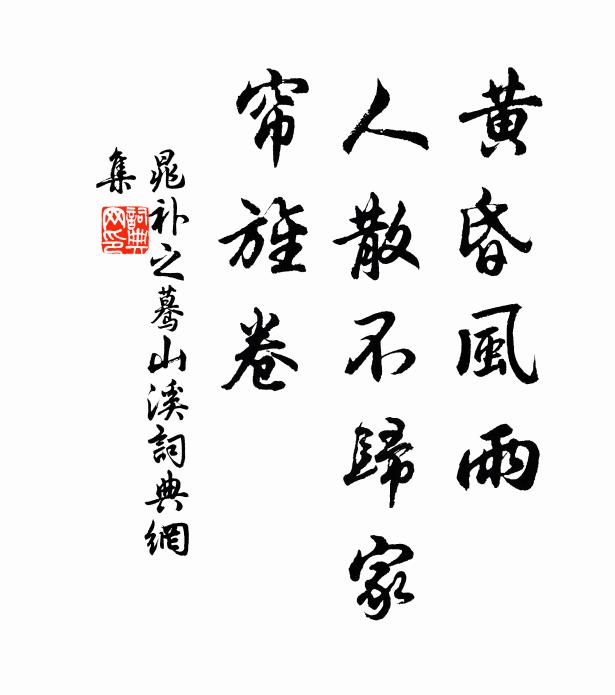 黄昏風雨
人散不歸家
帘旌卷
晁补之蓦山溪詞典網
集
詞典
网印